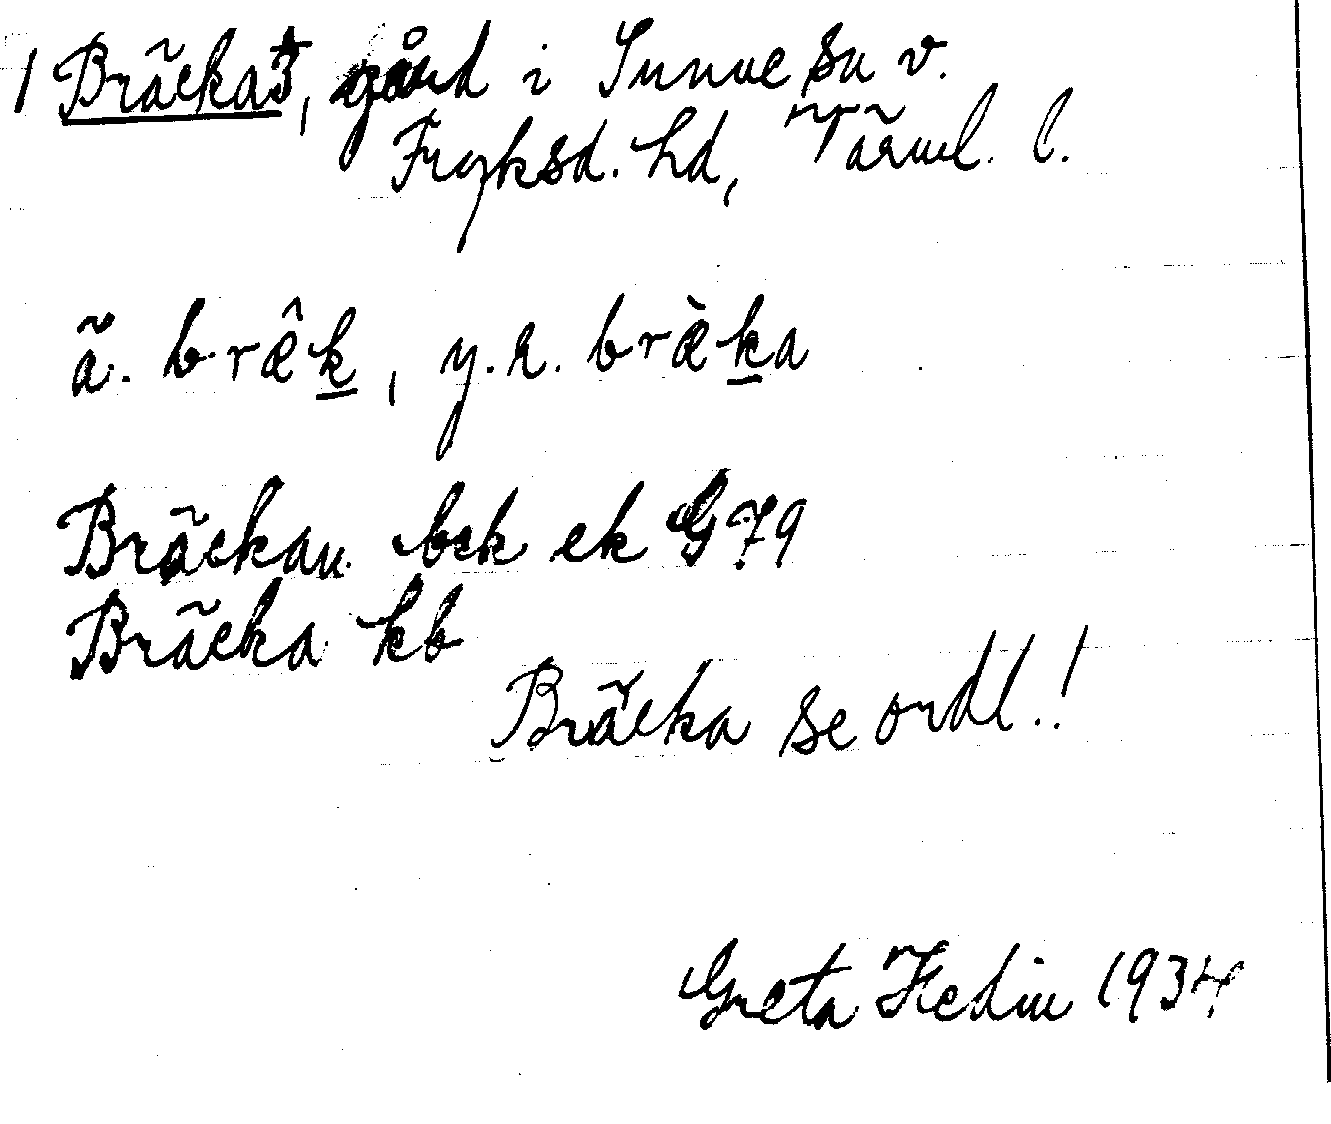 1 Bräcka, gård i Sunne sn v.
Fryksd. hd, Värml. l.
ä. bræ̂k, y. R. bræ̀ka
Bräckan bek ek G 79
Bräcka kb
Bräcka se ordl.!
Greta Hedin 1934